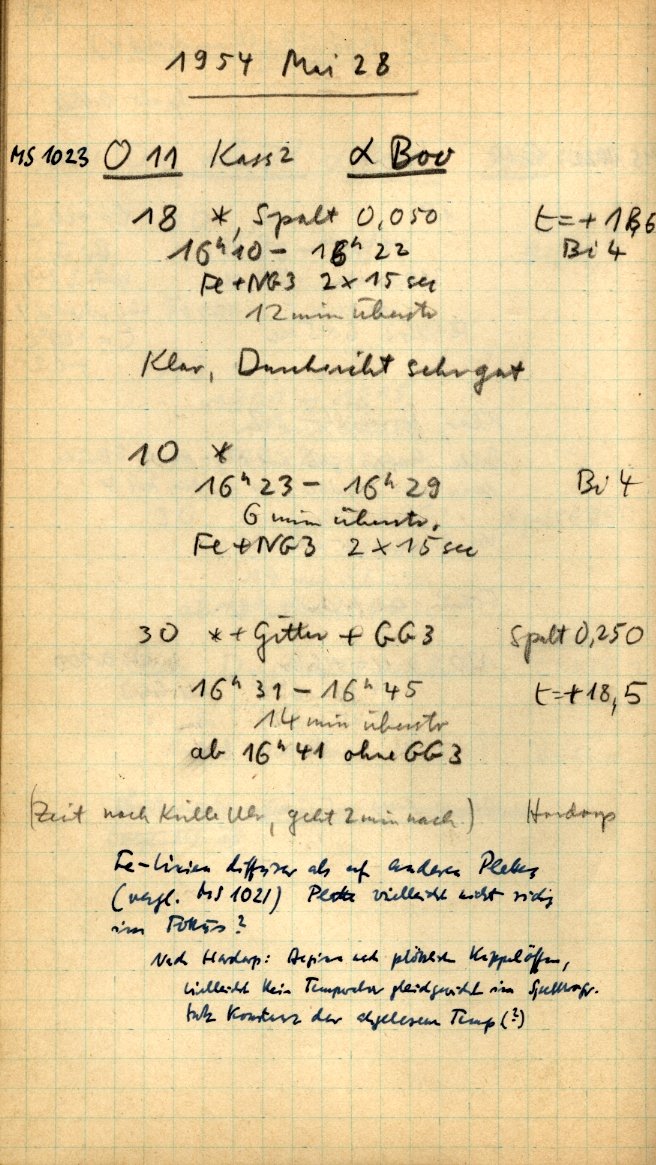 1954 Mai 28
MS 1023 O 11 Kass 2 α Boo
18 *, Spalt 0,050 t=+18,6
16ʰ10 – 16ʰ22 Bi 4
Fe+NG3 2×15 sec
12 min überstr
Klar, Durchsicht sehr gut
10 *
16ʰ23 – 16ʰ29 Bi 4
6 min überstr.
Fe+NG3 2×15 sec
30 *+Gitter + GG3 Spalt 0,250
16ʰ31 – 16ʰ45 t=+18,5
14 min überstr
ab 16ʰ41 ohne GG3
(Zeit nach Uhr, geht 2 min nach) Hardorp
Fe-Linien diffuser als auf anderen Platten
(vergl. MS 1021) Platte vielleicht nicht richtig
im Fokus?
Nach Hardorp: Beginn nach plötzlichem Kuppelöffnen,
vielleicht kein Temperaturgleichgewicht im Spektrogr.
trotz Konstanz der abgelesenen Temp (?)